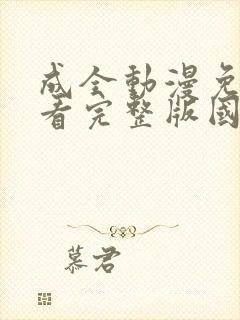 成全動漫免
看完整版國
慕君